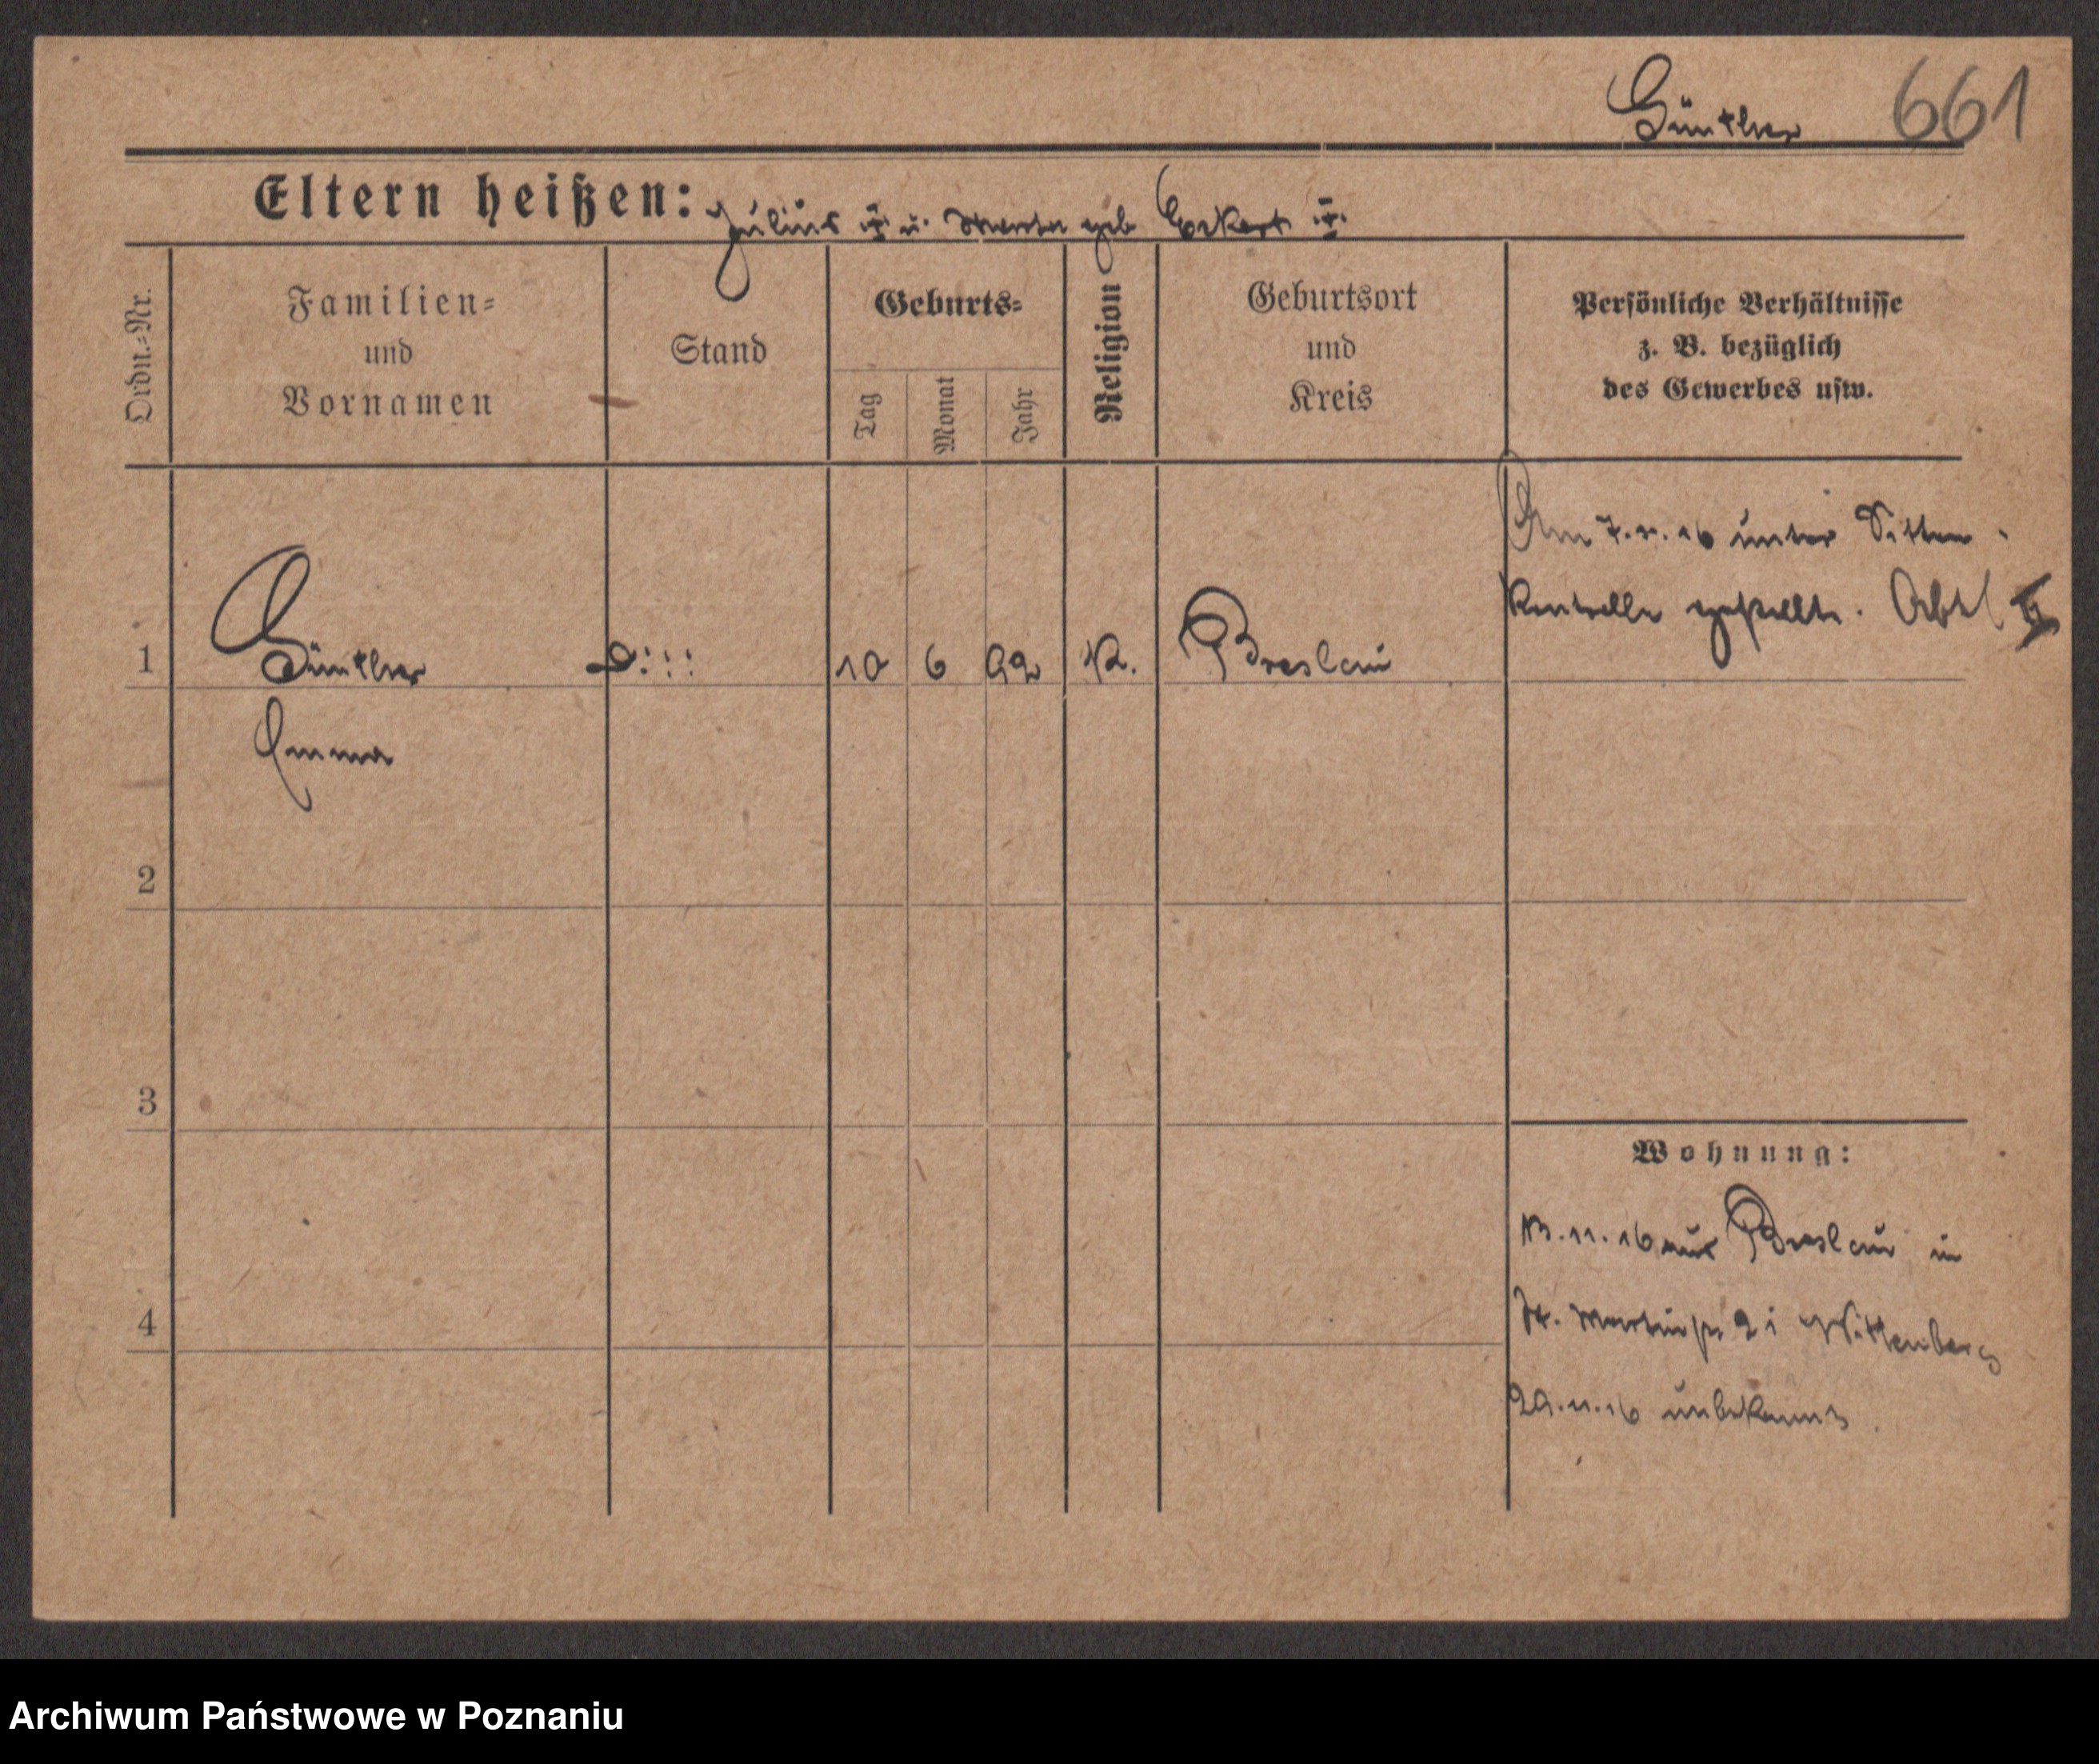 Günther 661
Eltern heißen: Julius ⵜ u. Marta geb Eckert
Ordn.-Nr.
Familien=
und
Vornamen
Stand
Geburts=
Tag
Monat
Jahr
Religion
Geburtsort
und
Kreis
Persönliche Verhältnisse
z. B. bezüglich
des Gewerbes usw.
Am 7. 11. 16 unter Sitten-
kontrolle gestellt. Abtl II
1 Günther 10 6 92 K. Breslau
Emma
2
3
Wohnung:
13. 11. 16 aus Breslau in
St. Martinstr 2 i Wittenberg
4
29. 11. 16 unbekannt.
Archiwum Państwowe w Poznaniu